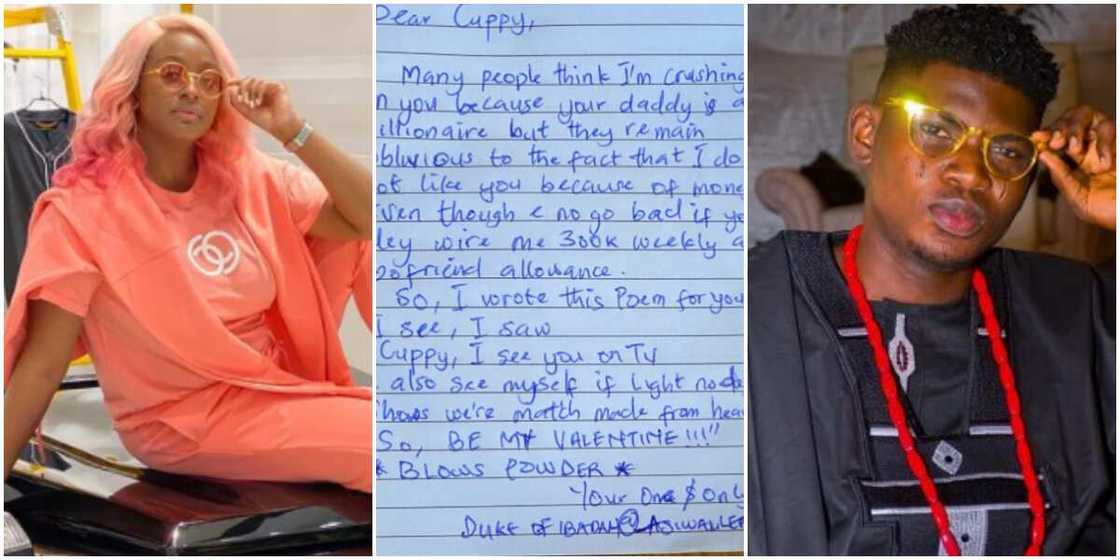 Dear Cuppy,
Many people think I'm crushing
n you because your daddy is a
illionaire but they remain
oblivious to the fact that I do
ot like you because of mone
Even though e no go bad if yo
dey wire me 300k weekly a
oofriend allowance.
So, I wrote this Poem for you
I see, I saw
Cuppy, I see you on TV
also see myself if Light no de
hows we're match made from hea
So, BE MY VALENTINE!!!"
* BLOWS POWDER *
Your One $ Only
DUKE OF IBADAN @